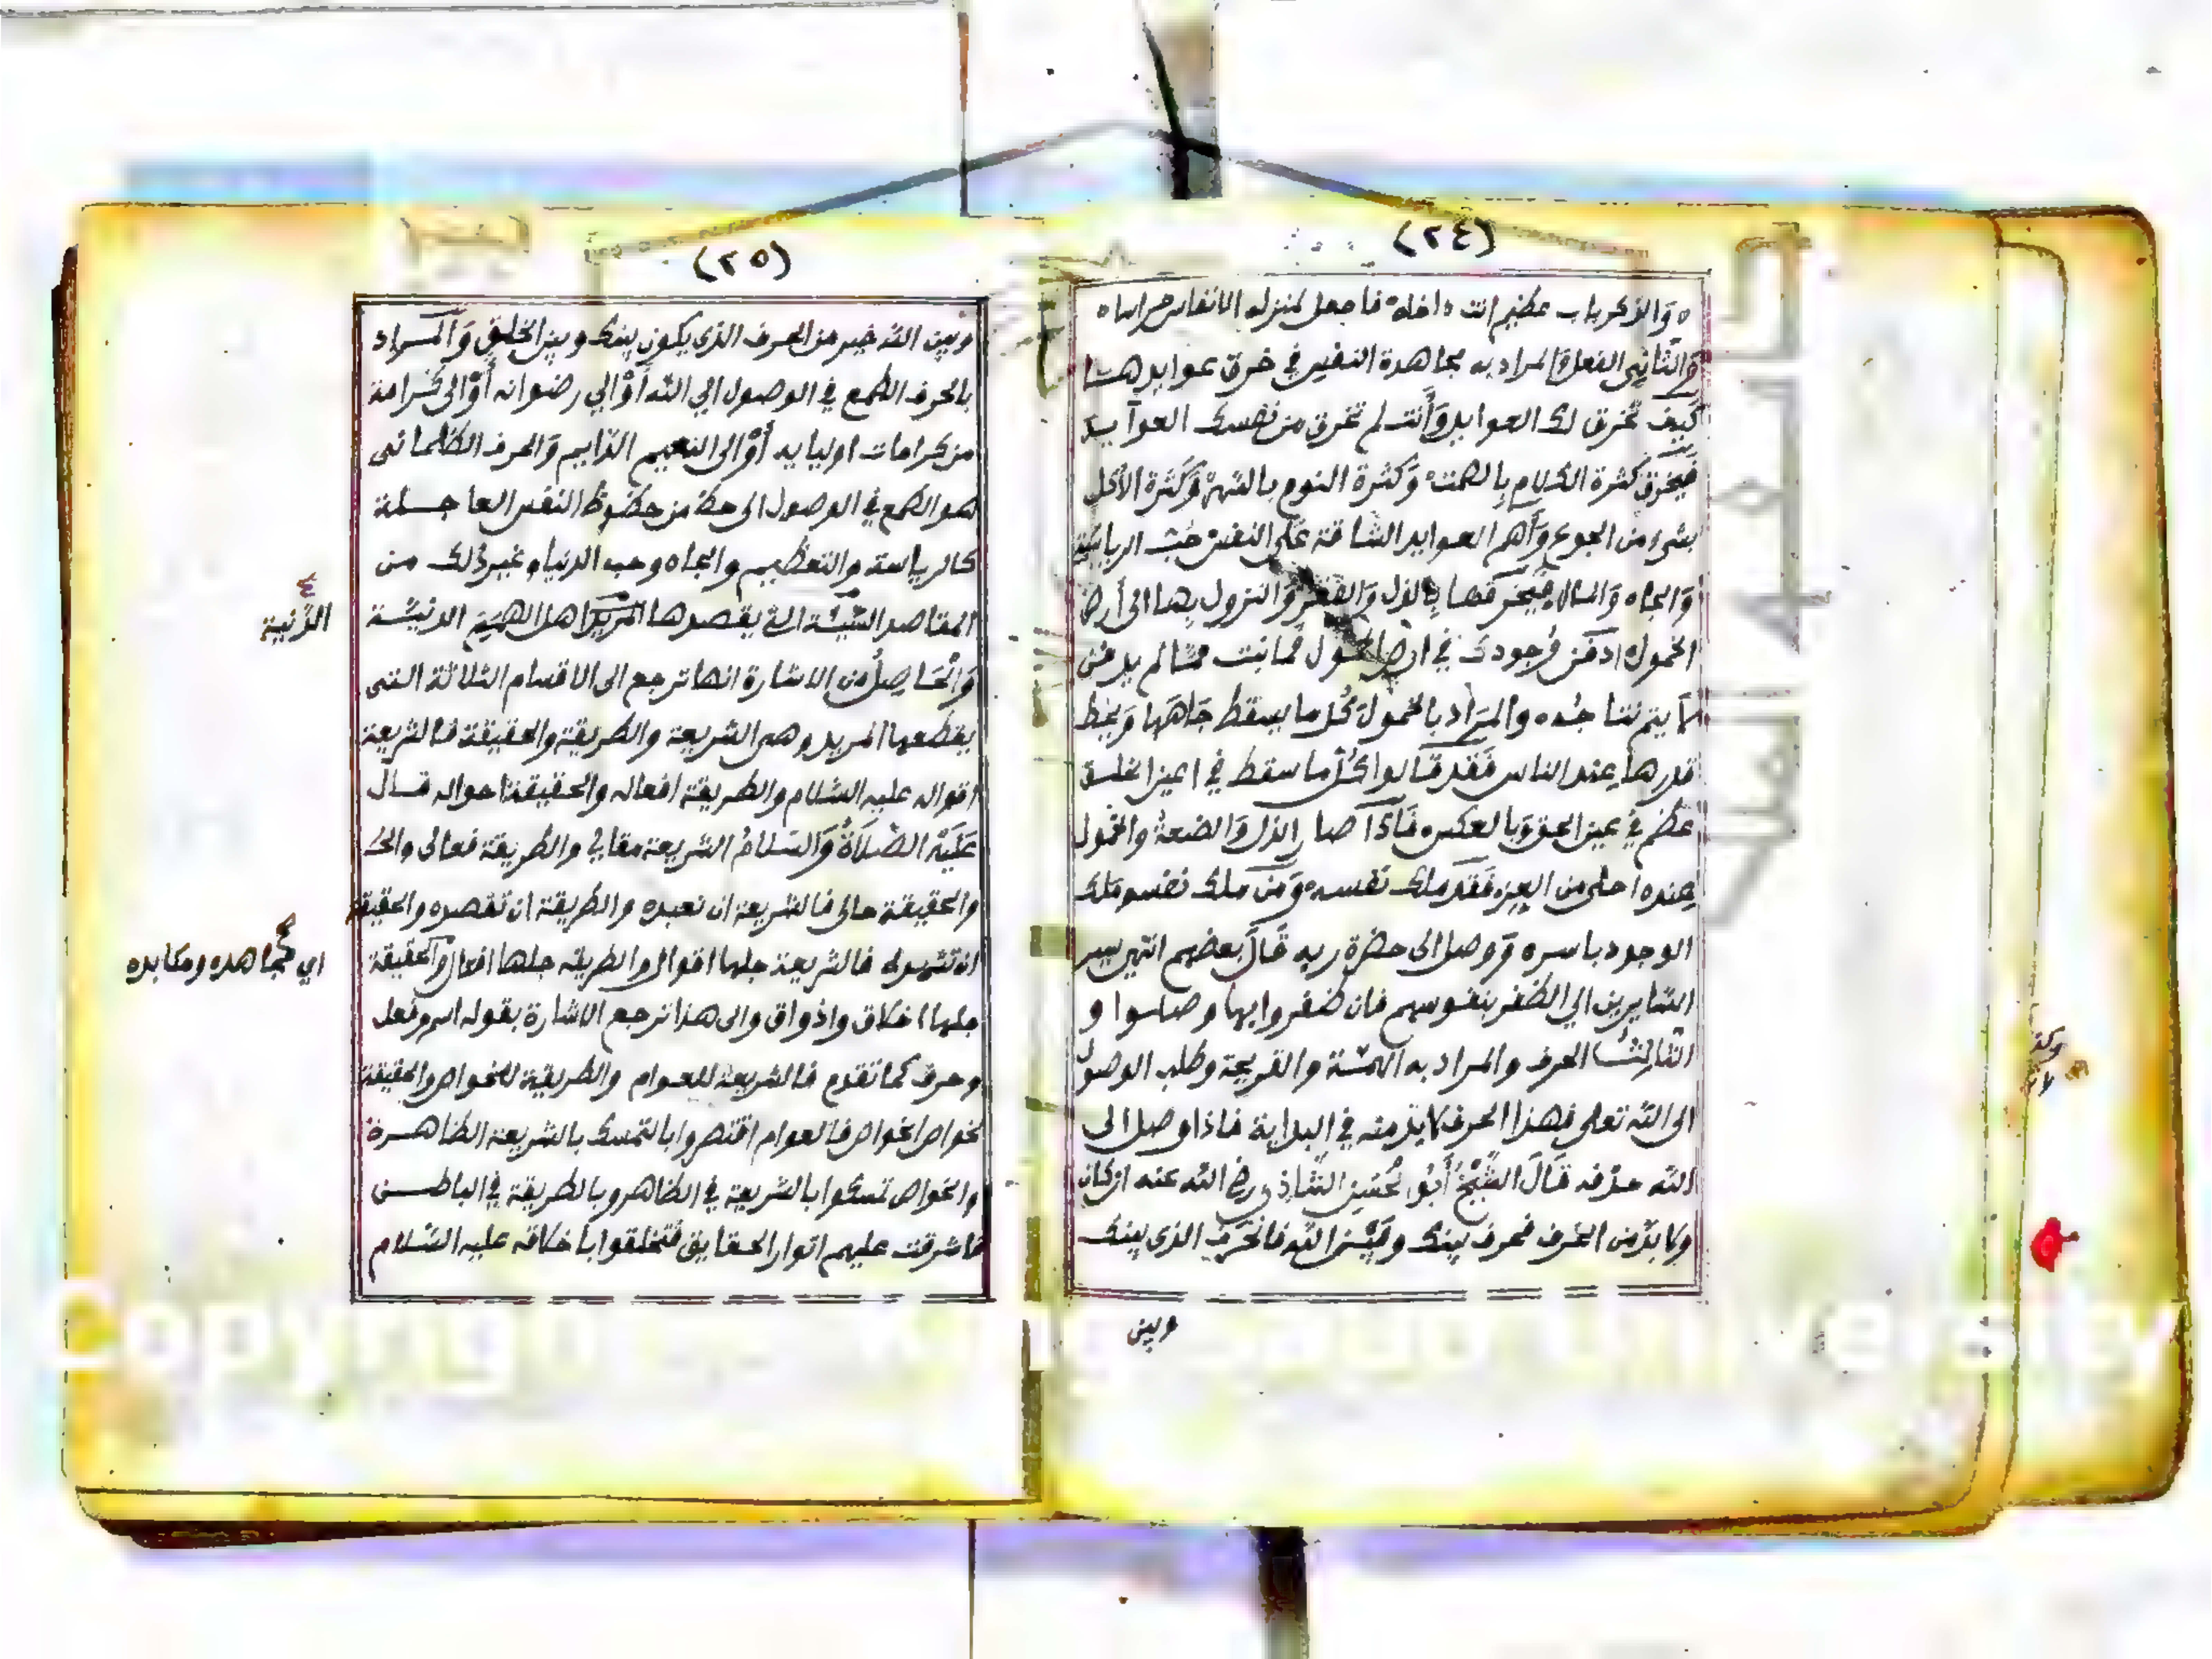 (٢٤)
ه والذكر باب عظيم انت داخله فاجعل لمنزله الانفاس حراسا ه
والثاني الفعل والمراد به مجاهدة النفس في خرق عوايدها
كيف تخرق لك العوايد وأنت لم تخرق من نفسك العوآيد
فيخرق كثرة الكلام بالصمت وكثرة النوم بالسهر وكثرة الأكل
بشيء من الجوع وأهم العوايد الشاقة على النفس حب الرياسة
والجاه والمال فيخرقها بالذل والفقر والنزول بها الى أرض
الخمول ادفن وجودك في ارض الخمول فما نبت مما لم يدفن
لا يتم نتاجه والمراد بالخمول كل ما يسقط جاهها ويحط
قدرها عند الناس فقد قالوا كل ما سقط في اعين الخلق
عظم في عين الحق وبالعكس فاذا صار الذل والضعة والخمول
عنده احلى من العز فقد ملك نفسه ومن ملك نفسه ملك
الوجود باسره ووصل الى حضرة ربه قال بعضهم انتهى سير
السايرين الي الظفر بنفوسهم فان ضفروا بها وصلوا و
الثالث الحرف والمراد به الهمة والقريحة وطلب الوصول
الى الله تعلى فهذا الحرف لا بد منه في البداية فاذا وصل الى
الله حذفه قال الشيخ أبو الحسن الشاذلي رضي الله عنه ان كان
ولا بد من الحرف فحرف بينك وبين الله فالحرف الذي بينك
وبين
(٢٥)
وبين الله خير من الحرف الذي يكون بينك وبين الخلق والمراد
بالحرف الطمع في الوصول الي الله أو الي رضوانه أو الى كرامة
من كرامات اوليايه أو الى النعيم الدايم والحرف الظلماني
هو الطمع في الوصول الى حظ من حظوظ النفس العاجلة
كالرياسة والتعظيم والجاه وحب الدنيا وغير ذلك من
المقاصد السيئة التي يقصدها المريد اهل الهمة الدنيئة
والحاصل من الاشارة انها ترجع الى الاقسام الثلاثة التي
يقطعها المريد وهي الشريعة والطريقة والحقيقة فالشريعة
اقواله عليه السلام والطريقة افعاله والحقيقة احواله قال
عليه الصلاة والسلام الشريعة مقالي والطريقة فعالي والحـ
والحقيقة حالي فالشريعة ان تعبده والطريقة ان تقصده والحقيقة
ان تشهده فالشريعة جلها اقوال والطريقه جلها افعال والحقيقة
جلها اخلاق واذواق والى هذا ترجع الاشارة بقوله اسم وفعل
وحرف كما تقدم فالشريعة للعوام والطريقة للخواص والحقيقة
لخواص الخواص فالعوام اقتصروا بالتمسك بالشريعة الظاهرة
والخواص تمسكوا بالشريعة في الظاهر وبالطريقة في الباطن
فاشرقت عليهم انوار الحقايق فتخلقوا باخلاقه عليه السلام
الدنية
اي مجاهده ومكابده
Copyright © King Saud University